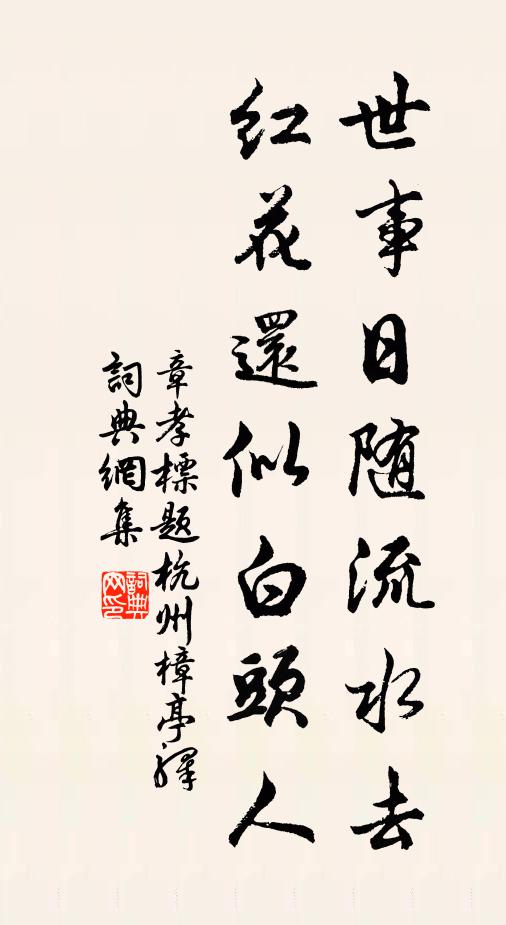 世事日随流水去
红花還似白頭人
章孝標题杭州樟亭驛
詞典網集
詞典网印